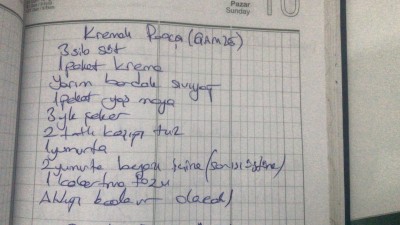 Pazar
Sunday
10
Kremalı Poaça (
3 sb süt
1 paket krema
Yarım bardak sıvıyağ
1 paket yaş maya
3 yk şeker
2 tatlı kaşığı tuz
1 yumurta
2 yumurta beyazı içine (sarısı üstüne)
1 kabartma tozu
Aldığı kadar